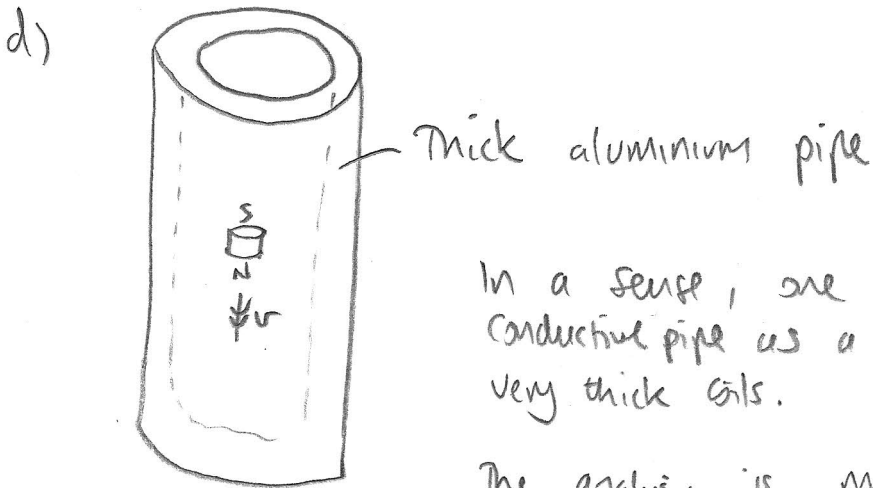 d)
Thick aluminium pipe
S
N
v
In a sense, one
conductive pipe as a
very thick coils.
The is